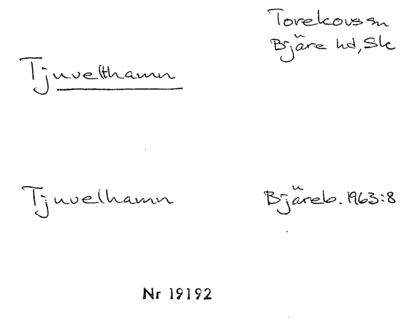 Torekovs sn
Bjäre hd, Sk
Tjuvelthamn
Tjuvelhamn
Bjäreb. 1963:8
Nr 19192